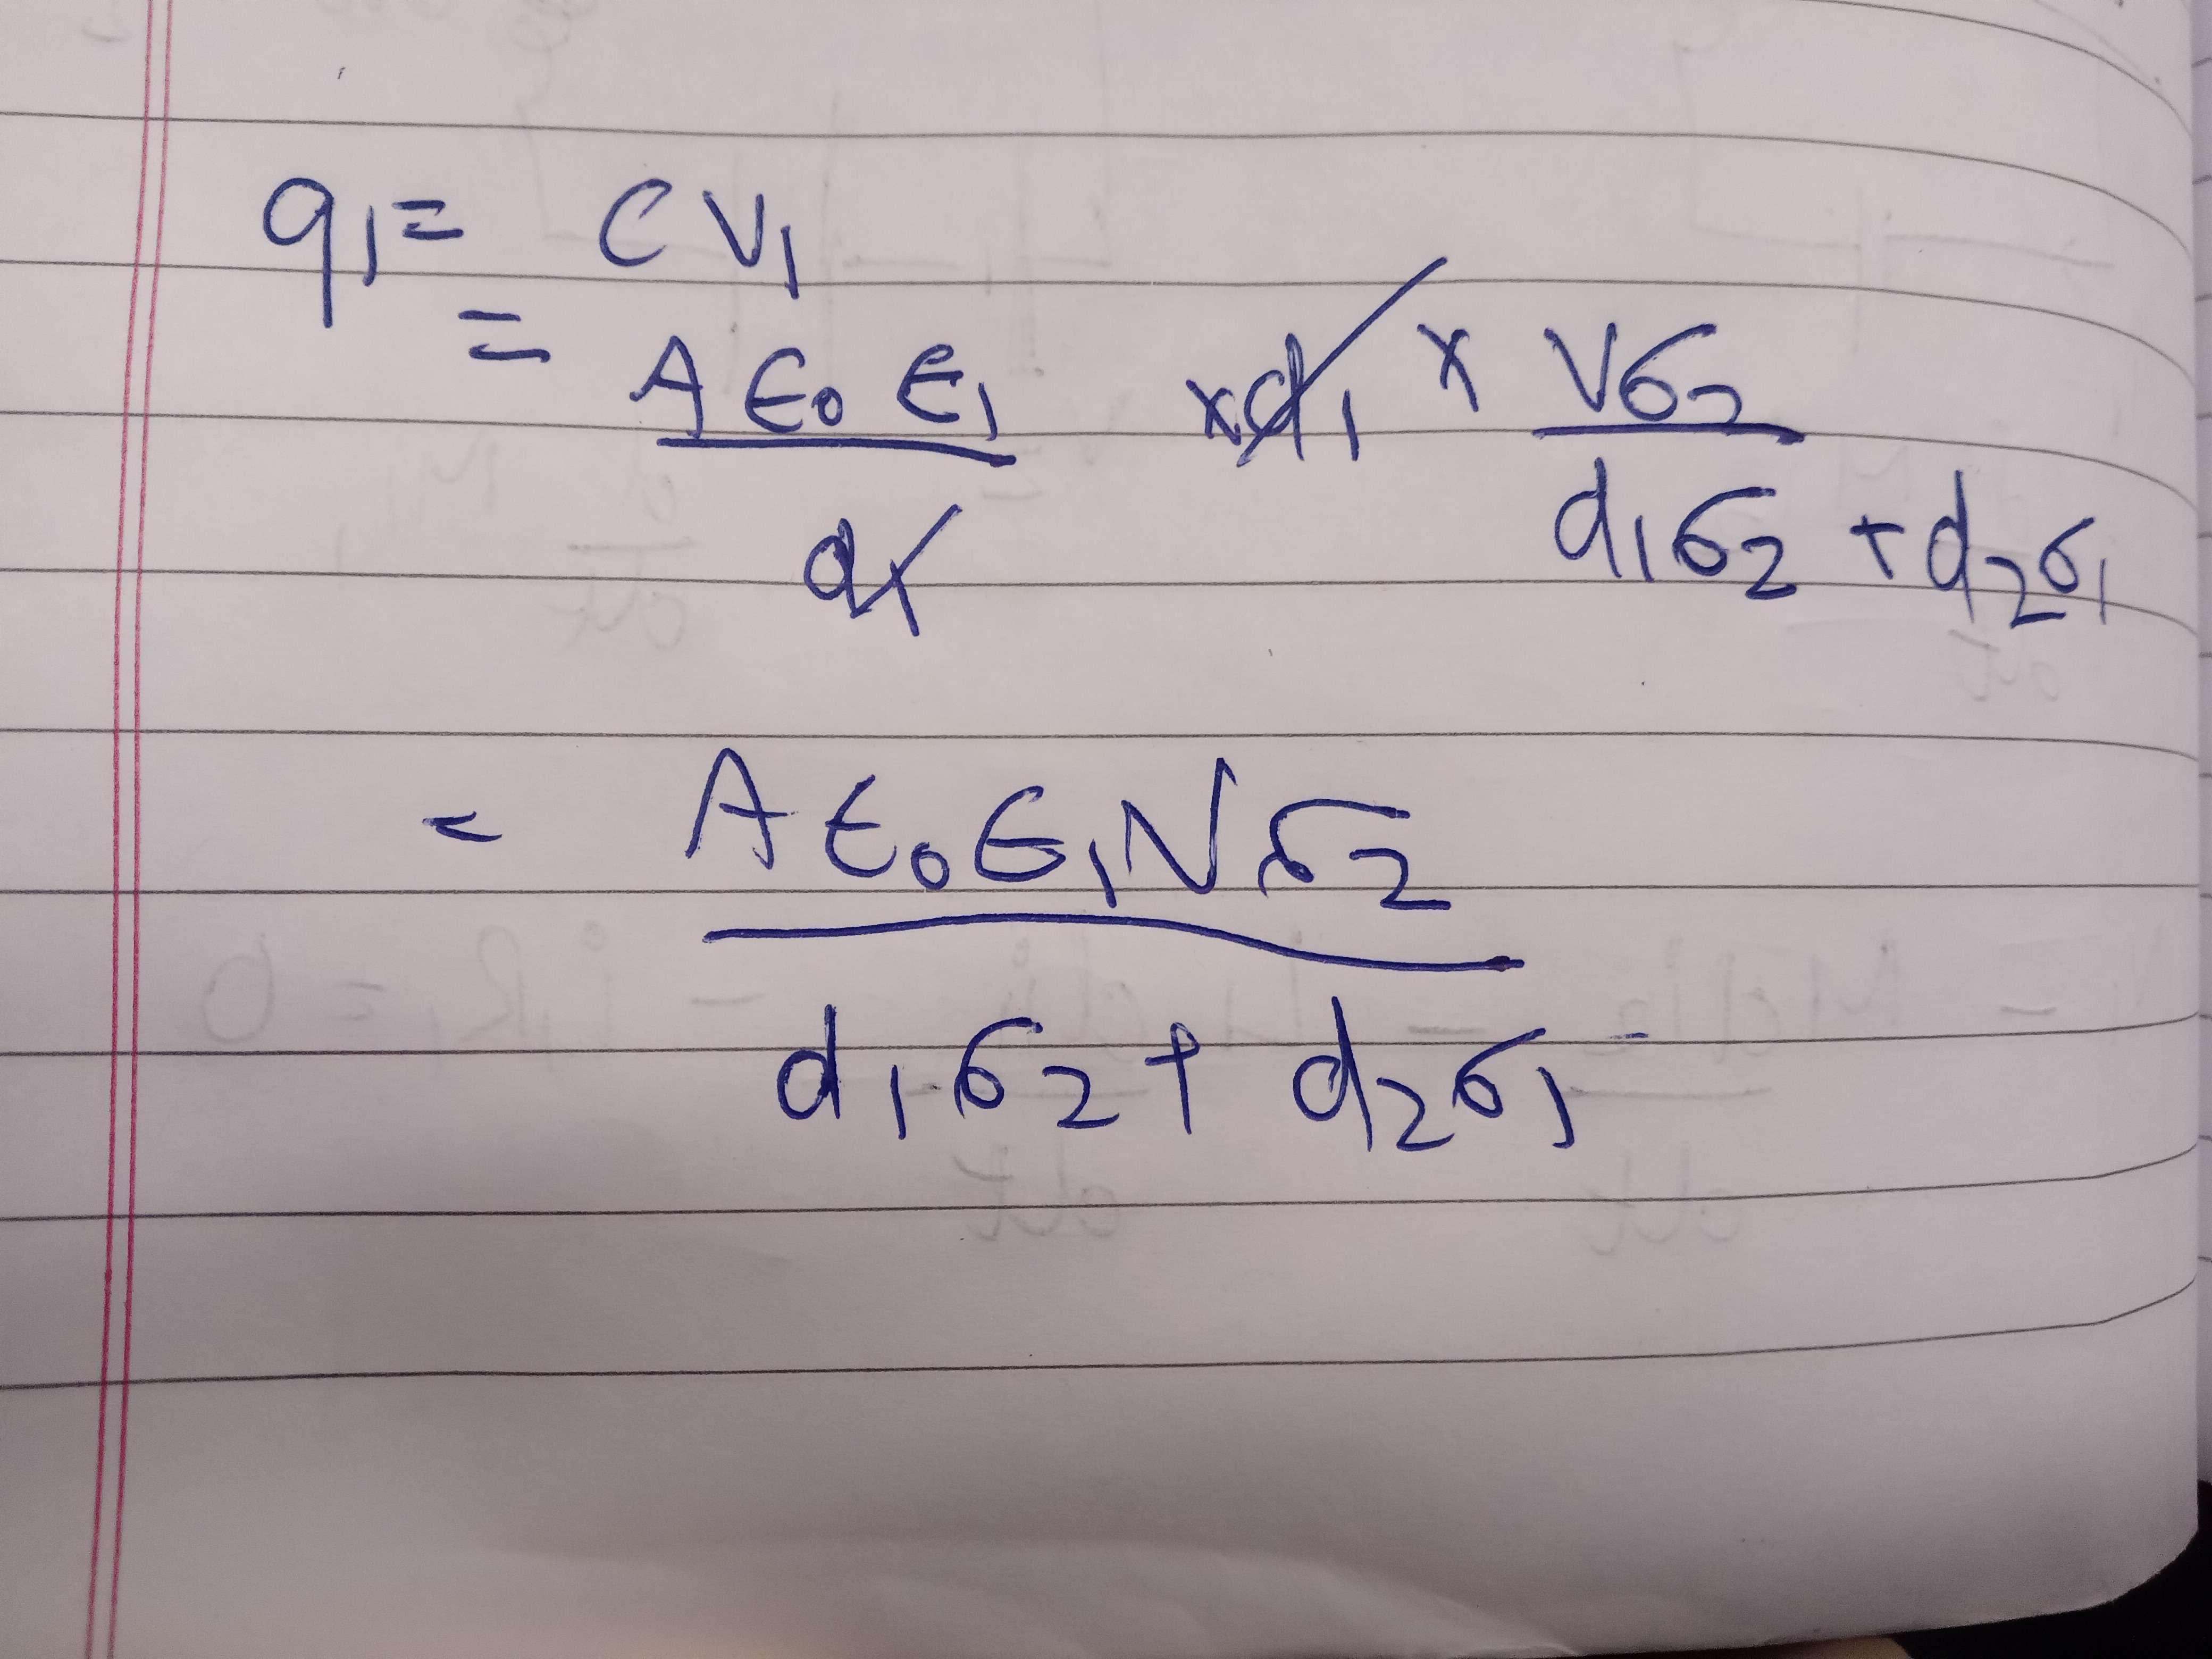 q₁ = C V₁
= A ϵ₀ ϵ₁ / d₁ × d₁ × Vσ₂ / d₁σ₂ + d₂σ₁
= A ϵ₀ ϵ₁ V σ₂ / d₁σ₂ + d₂σ₁